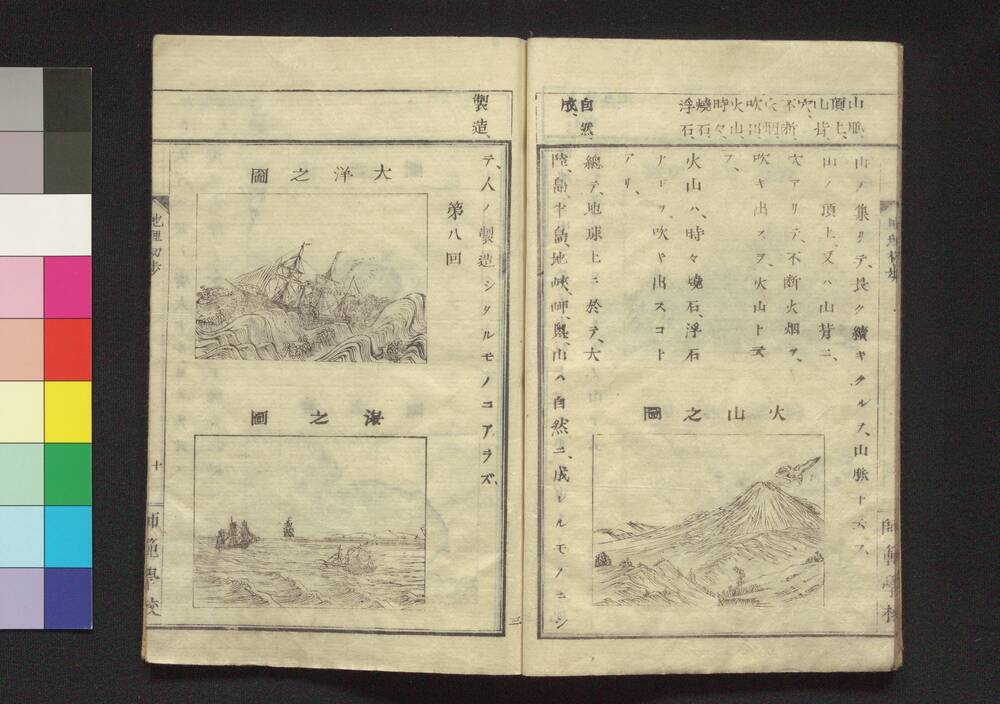 山脈、
頂上、
山背、
穴、
不断
火烟
吹出
火山、
時々、
燒石
浮石、
自然
成、
山ノ集リテ、長ク續キタルヲ、山脈トイフ、
山ノ頂上、又ハ山背ニ、
穴アリテ、不断火烟ヲ、
吹キ出スヲ、火山ト云
フ、
火山ハ、時々燒石、浮石
ナドヲ、吹キ出スコト
アリ、
火山之圖
總テ、地球上ニ於テ、大
陸、島、半島、地峽、岬、與山ハ、自然ニ、成レルモノニシ
師範學校
製造、
テ、人ノ製造シタルモノニアラズ、
第八回
大洋之圖
海之圖
地理初歩
十
師範學校
三